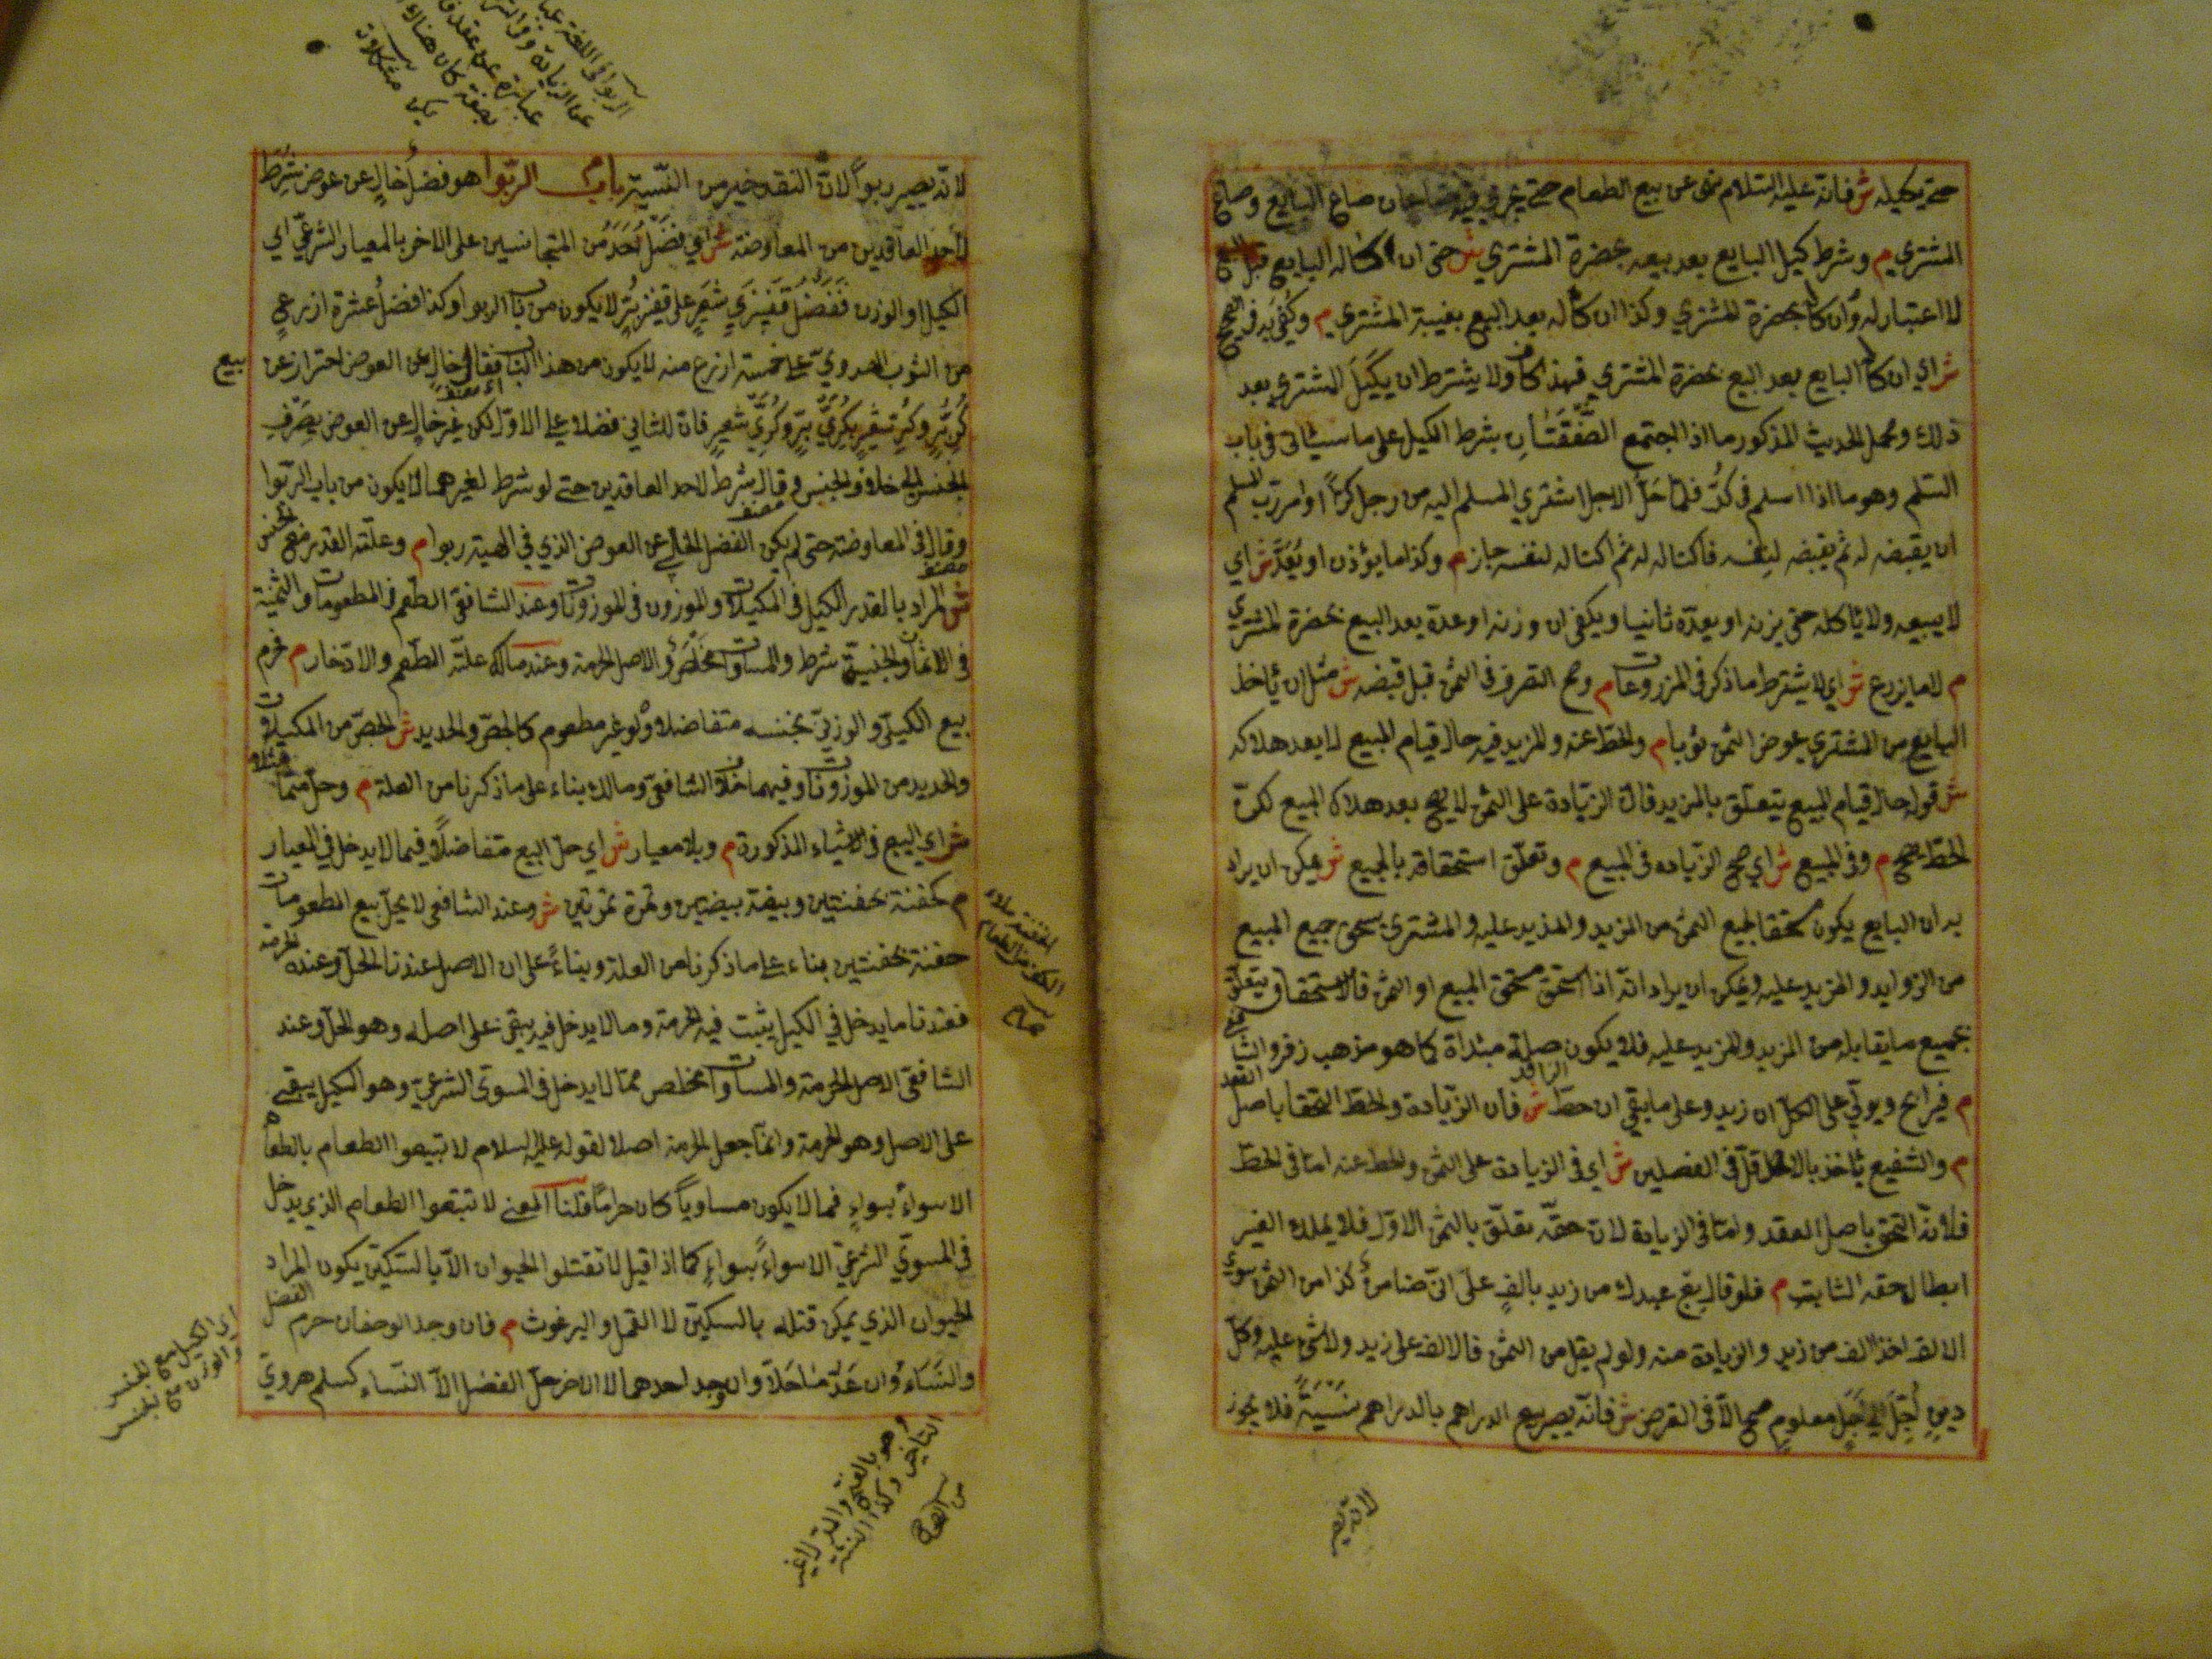 حتى يكيله ش فانه عليه السلام نهى عن بيع الطعام حتى يجرى فيه صاعان صاع البايع وصاع
المشتري م وشرط كيل البايع بعد بيعه بحضرة المشتري ش حتى ان كاله البايع قبل البيع
لا اعتبار له وان كان بحضرة المشتري وكذا ان كاله بعد البيع بغيبة المشتري م وكفى به في الصحيح
ش اي ان كال البايع بعد البيع بحضرة المشتري فهذا كاف ولا يشترط ان يكيل المشتري بعد
ذلك ومحمل الحديث المذكور ما اذا اجتمع الصفقتان بشرط الكيل على ما سيأتى فى باب
السلم وهو ما اذا اسلم فى كر فلما حل الاجل اشترى المسلم اليه من رجل كرا او امر رب السلم
ان يقبضه له ثم يقبضه لنفسه فاكتاله له ثم اكتاله لنفسه جاز م وكذا ما يوزن او يعد ش اي
لا يبيعه ولا ياكله حتى يزنه او يعده ثانيا ويكفى ان وزنه او عده بعد البيع بحضرة المشتري
م لا ما يزرع ش اي لا يشترط ما ذكر فى المزروعات م وصح التصرف فى الثمن قبل قبضه ش مثل ان يأخذ
البايع من المشتري عوض الثمن ثوبا م والحط عنه والمزيد فيه حال قيام المبيع لا بعد هلاكه
ش قوله حال قيام المبيع يتعلق بالمزيد فان الزيادة على الثمن لا يصح بعد هلاك المبيع لكن
الحط يصح م وفى المبيع ش اي صح الزياده فى المبيع م وتعلق استحقاقه بالجميع ش يمكن ان يراد
به ان البايع يكون مستحقا لجميع الثمن من المزيد والمزيد عليه والمشتري يستحق جميع المبيع
من الزوايد والمزيد عليه ويمكن ان يراد انه اذا استحق مستحق المبيع او الثمن فالاستحقاق يتعلق
بجميع ما يقابله من المزيد والمزيد عليه فلا يكون صلة مبتداة كما هو مذهب زفر والشافعي
م فيرابح ويولي على الكل ان زيد وعلى ما بقي ان حط ش فان الزيادة والحط التحقا باصل العقد
م والشفيع يأخذ بالاقل فى الفصلين ش اي فى الزيادة على الثمن والحط عنه اما فى الحط
فلانه التحق باصل العقد واما فى الزيادة لان حقه تعلق بالثمن الاول فلا يملك الغير
ابطال حقه الثابت م فلو قال بع عبدك من زيد بالف على انى ضامن كذا من الثمن سوى
الالف اخذ الف من زيد والزيادة منه ولو لم يقل من الثمن فالالف على زيد ولا شئ عليه وكل
دين اجل الى اجل معلوم صح الا فى القرض ش فانه يصير بيع الدراهم بالدراهم نسيئة فلا يجوز
لانه يصير
لانه يصير ربوا لان النقد خير من النسية باب الربوا هو فضل خال عن عوض شرط
لاحد العاقدين من المعاوضة ش اي فضل احد من المتجانسين على الاخر بالمعيار الشرعي اي
الكيل او الوزن ففضل قفيزي شعير على قفيز بر لا يكون من باب الربوا وكذا فضل عشرة اذرع
من الثوب الهروي على خمسة اذرع منه لا يكون من هذا الباب فقال خال عن العوض احتراز عن
بيع
كر بر وكر شعير بكري بر وكري شعير فان للثاني فضلا على الاول لكن غير خال عن العوض بصرف
الجنس الى خلاف الجنس وقال شرط لاحد العاقدين حتى لو شرط لغيرهما لا يكون من باب الربوا
وقال فى المعاوضة حتى لم يكن الفضل الخالى عن العوض الذي فى الهبة ربوا م وعلته القدر مع الجنس
ش المراد بالقدر الكيل فى المكيلات والموزون فى الموزونات وعند الشافعي الطعم فى المطعومات والثمنية
فى الاثمان والجنسية شرط والمساوات مخلص والاصل الحرمة وعند مالك علته الطعم والادخار م فحرم
بيع الكيلى والوزني بجنسه متفاضلا ولو غير مطعوم كالجص والحديد ش الجص من المكيلات
والحديد من الموزونات وفيهما خلاف الشافعي ومالك بناء على ما ذكرنا من العلة م وحل متماثلا
ش اي البيع فى الاشياء المذكورة م وبلا معيار ش اي حل البيع متفاضلا فيما لا يدخل في المعيار
م كحفنة بحفنتين وبيضة ببيضتين وتمرة بتمرتين ش وعند الشافعي لا يحل بيع المطعومات
حفنة بحفنتين بناء على ما ذكرنا من العلة وبناء على ان الاصل عندنا الحل وعنده الحرمة
فعندنا ما يدخل في الكيل يثبت فيه الحرمة وما لا يدخل فيه يبقى على اصله وهو الحل وعند
الشافعي الاصل الحرمة والمساوات مخلص مما لا يدخل فى المسوى الشرعي وهو الكيل يبقى
على الاصل وهو الحرمة وانما جعل الحرمة اصلا لقوله عليه السلام لا تبيعوا الطعام بالطعام
الا سواء بسواء فما لا يكون مساويا كان حراما قلنا المعنى لا تبيعوا الطعام الذي يدخل
فى المسوي الشرعي الا سواء بسواء كما اذا قيل لا تقتلوا الحيوان الا بالسكين يكون المراد
الحيوان الذي يمكن قتله بالسكين لا القمل والبرغوث م فان وجد الوصفان حرم الفضل
والنساء وان عدما حلا وان وجد احدهما لا الاخر حل الفضل لا النساء كسلم هروي
اي الكيل مع الجنس
والوزن مع الجنس